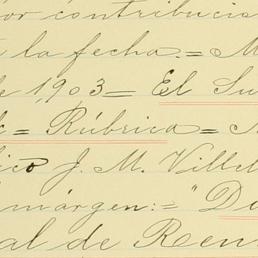 por contribucio
la fecha.= M
de 1,903= El Su
= Rúbrica = 
J. M. Ville
márgen:= "Do
al de Ren